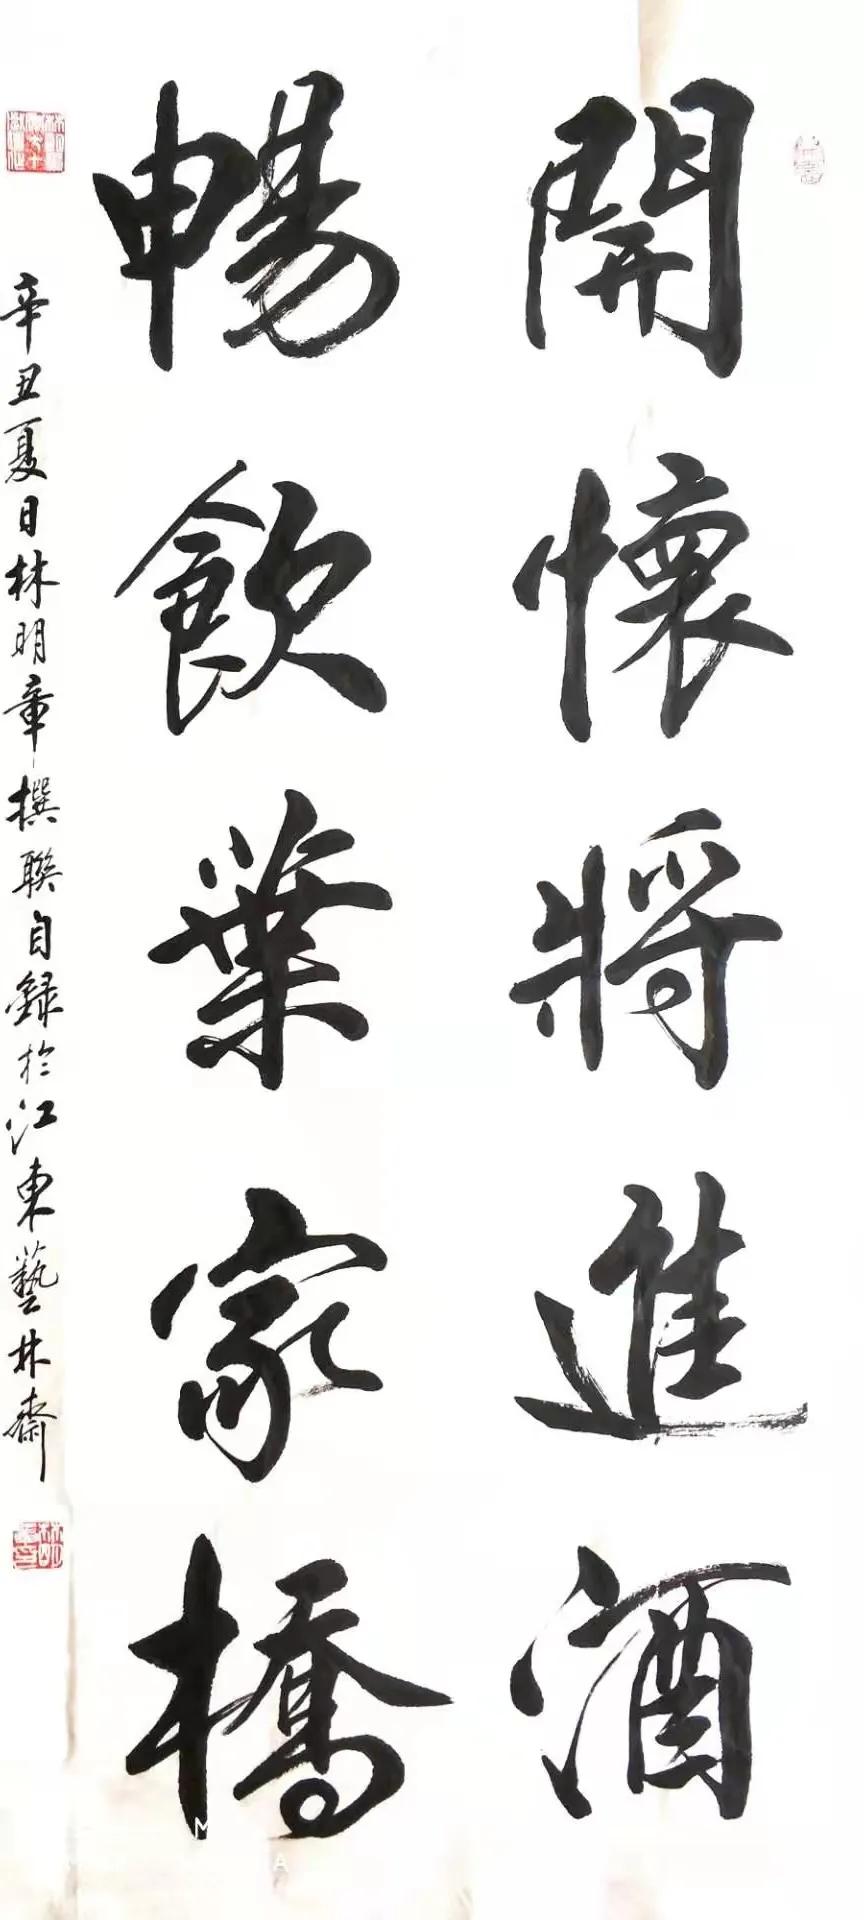 開懷將進酒
暢飲葉家橋
辛丑夏日林明章撰聯自録於江東藝林齋